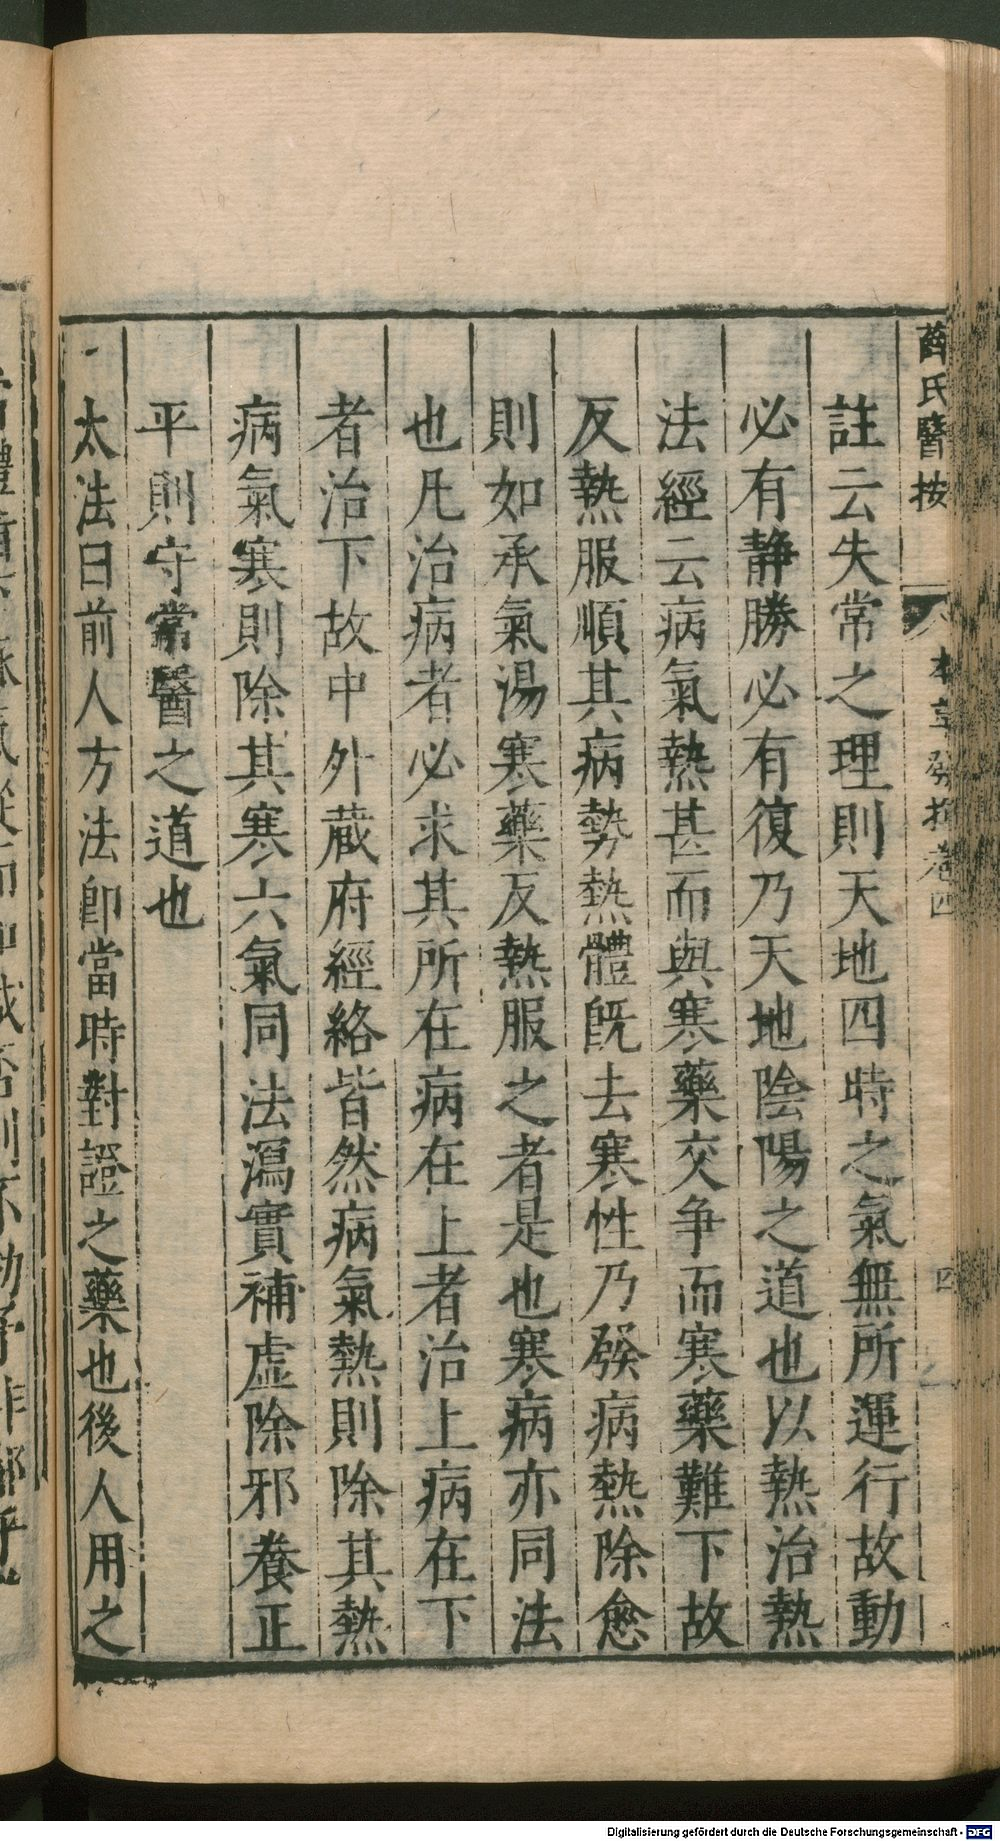 薛氏醫按
本草發揮卷四
四
註云失常之理則天地四時之氣無所運行故動
必有静勝必有復乃天地陰陽之道也以熱治熱
法經云病氣熱甚而與寒藥交争而寒藥難下故
反熱服順其病勢熱體既去寒性乃發病熱除愈
則如承氣湯寒藥反熱服之者是也寒病亦同法
也凡治病者必求其所在病在上者治上病在下
者治下故中外蔵府經絡皆然病氣熱則除其熱
病氣寒則除其寒六氣同法瀉實補虚除邪養正
平則守常醫之道也
太法曰前人方法卽當時對證之藥也後人用之
Digitalisierung gefördert durch die Deutsche Forschungsgemeinschaft - DFG